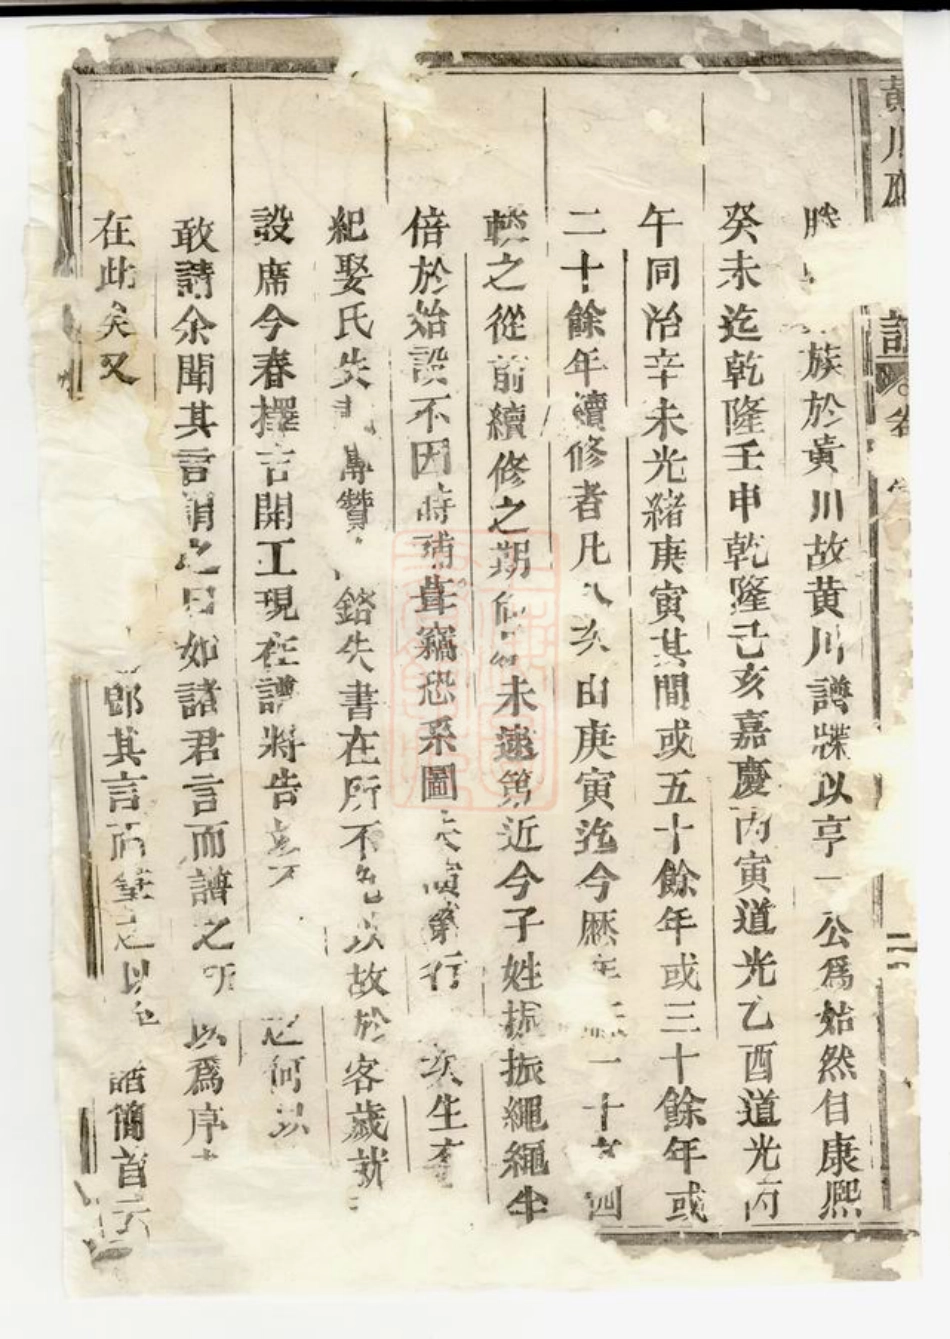 黃川
譜
卷
二
族於黃川故黃川譜牒以亨一公爲始然自康熙
癸未迄乾隆壬申乾隆己亥嘉慶丙寅道光乙酉道光丙
午同治辛未光緒庚寅其間或五十餘年或三十餘年或
二十餘年續修者凡八次由庚寅迄今歷年一十
輕之從前續修之期尚未遠第近今子姓振振繩繩生
倍於始設不因時補葺竊恐系圖失 第行 生
紀娶氏失 贊 銘失書在所不免以故於客歲就
設席今春擇吉開工現在譜將告 何以
敢請余聞其言謂之曰如諸君言而譜之所以爲序
在此矣又 郎其言而筆之以 諸簡首云